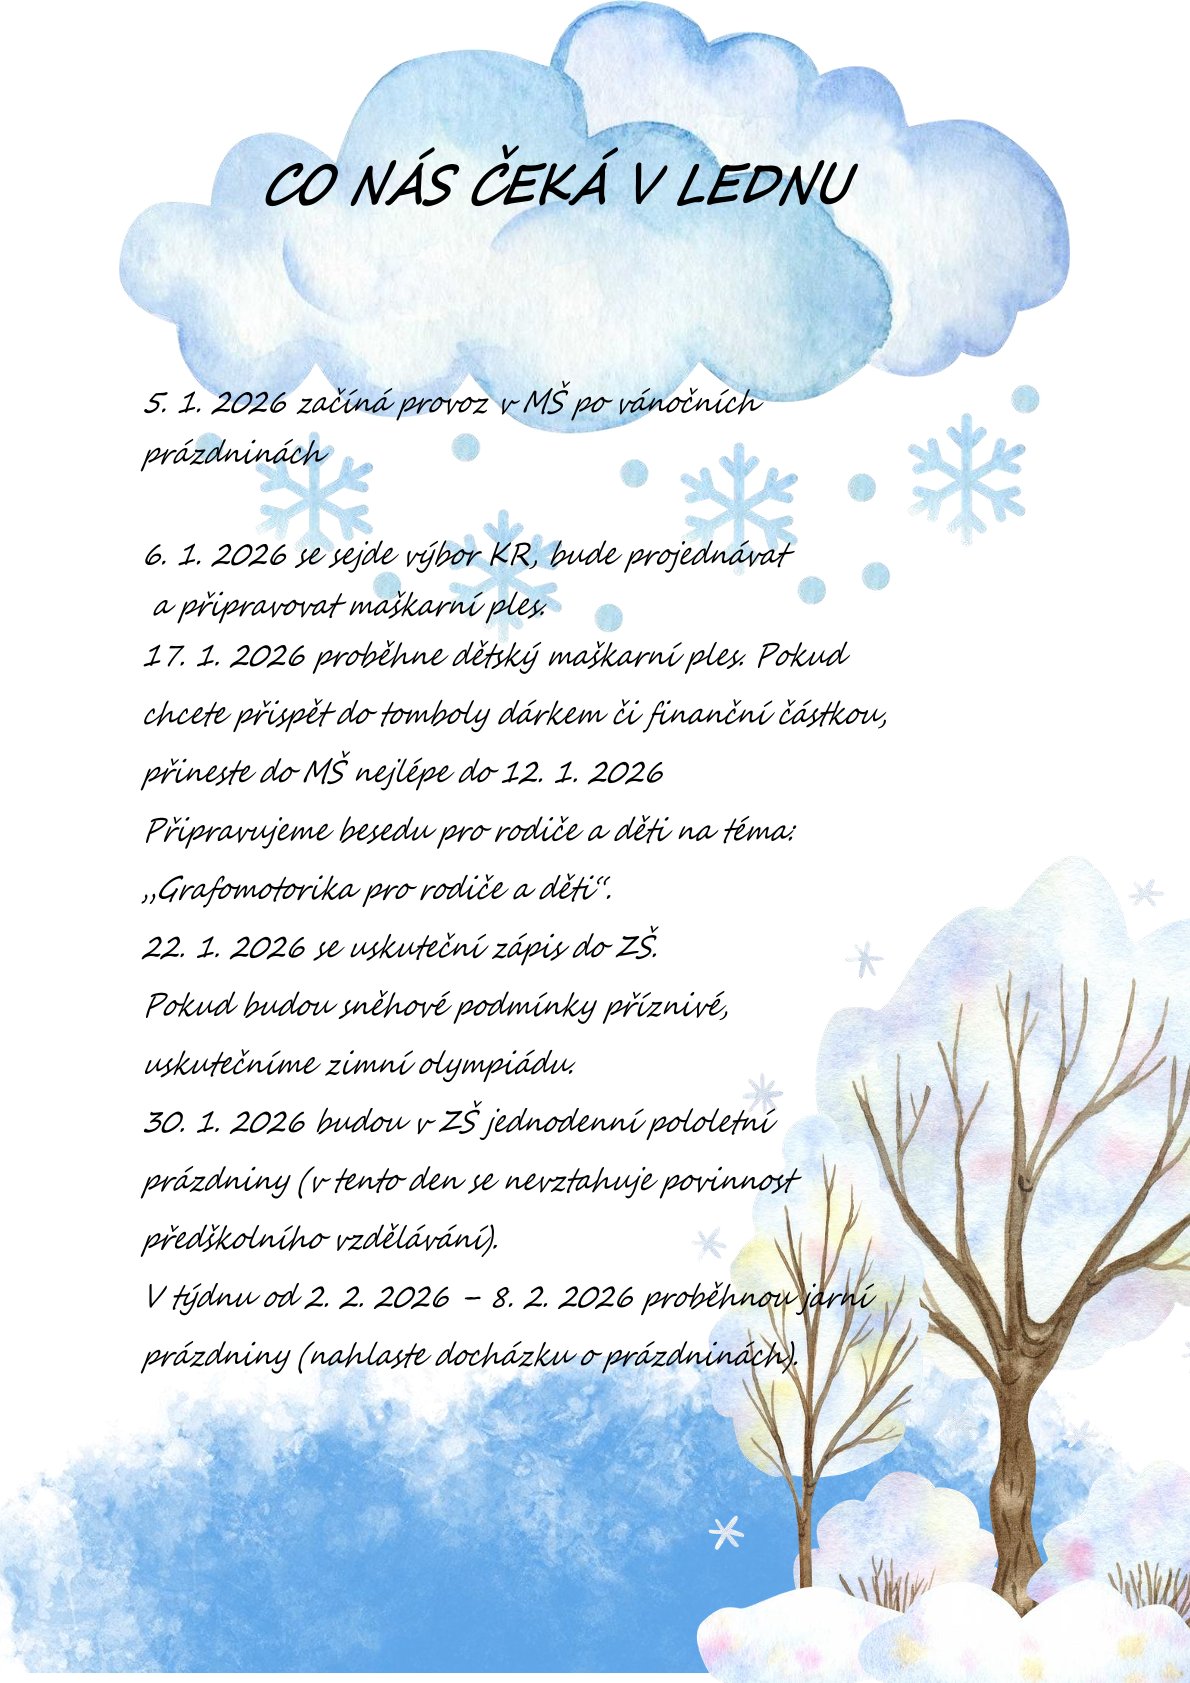 CO NÁS ČEKÁ V LEDNU
5. 1. 2026 začíná provoz v MŠ po vánočních
prázdninách
6. 1. 2026 se sejde výbor KR, bude projednávat
a připravovat maškarní ples.
17. 1. 2026 proběhne dětský maškarní ples. Pokud
chcete přispět do tomboly dárkem či finanční částkou,
přineste do MŠ nejlépe do 12. 1. 2026
Připravujeme besedu pro rodiče a děti na téma:
„Grafomotorika pro rodiče a děti“.
22. 1. 2026 se uskuteční zápis do ZŠ.
Pokud budou sněhové podmínky příznivé,
uskutečníme zimní olympiádu.
30. 1. 2026 budou v ZŠ jednodenní pololetní
prázdniny (v tento den se nevztahuje povinnost
předškolního vzdělávání).
V týdnu od 2. 2. 2026 – 8. 2. 2026 proběhnou jarní
prázdniny (nahlaste docházku o prázdninách).